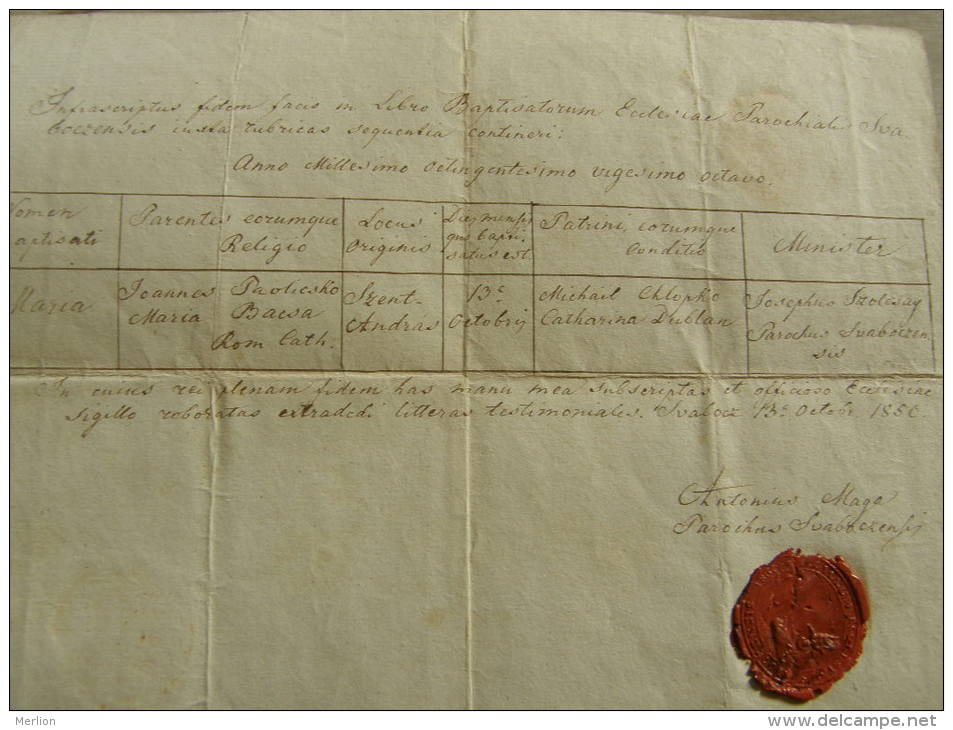 Infrascriptus fidem facio in Libro Baptisatorum Ecclesiae Parochialis Sva
boczensis iuxta rubricas sequentia contineri:
Anno Millesimo Octingentesimo vigesimo octavo.
Nomen
aptisati
Parentes eorumque
Religio
Locus
Originis
Dies mensis
quo bapti
satus est.
Patrini, eorumque
Conditio
Minister
Maria
Joannes
Maria
Bacsa
Rom Cath.
Szent-
András
13a
Octobris
Michail Chlopko
Catharina Dublan
Josephus
Parochus Svaboczen-
sis
In cuius rei plenam fidem has manu mea subscriptas et officioso Ecclesiae
Sigillo roboratas extradedi litteras testimoniales. Svabocz 13a Octobr
Antonius Maga
Parochus Svaboczensis
Merlion
http://www.delcampe.net